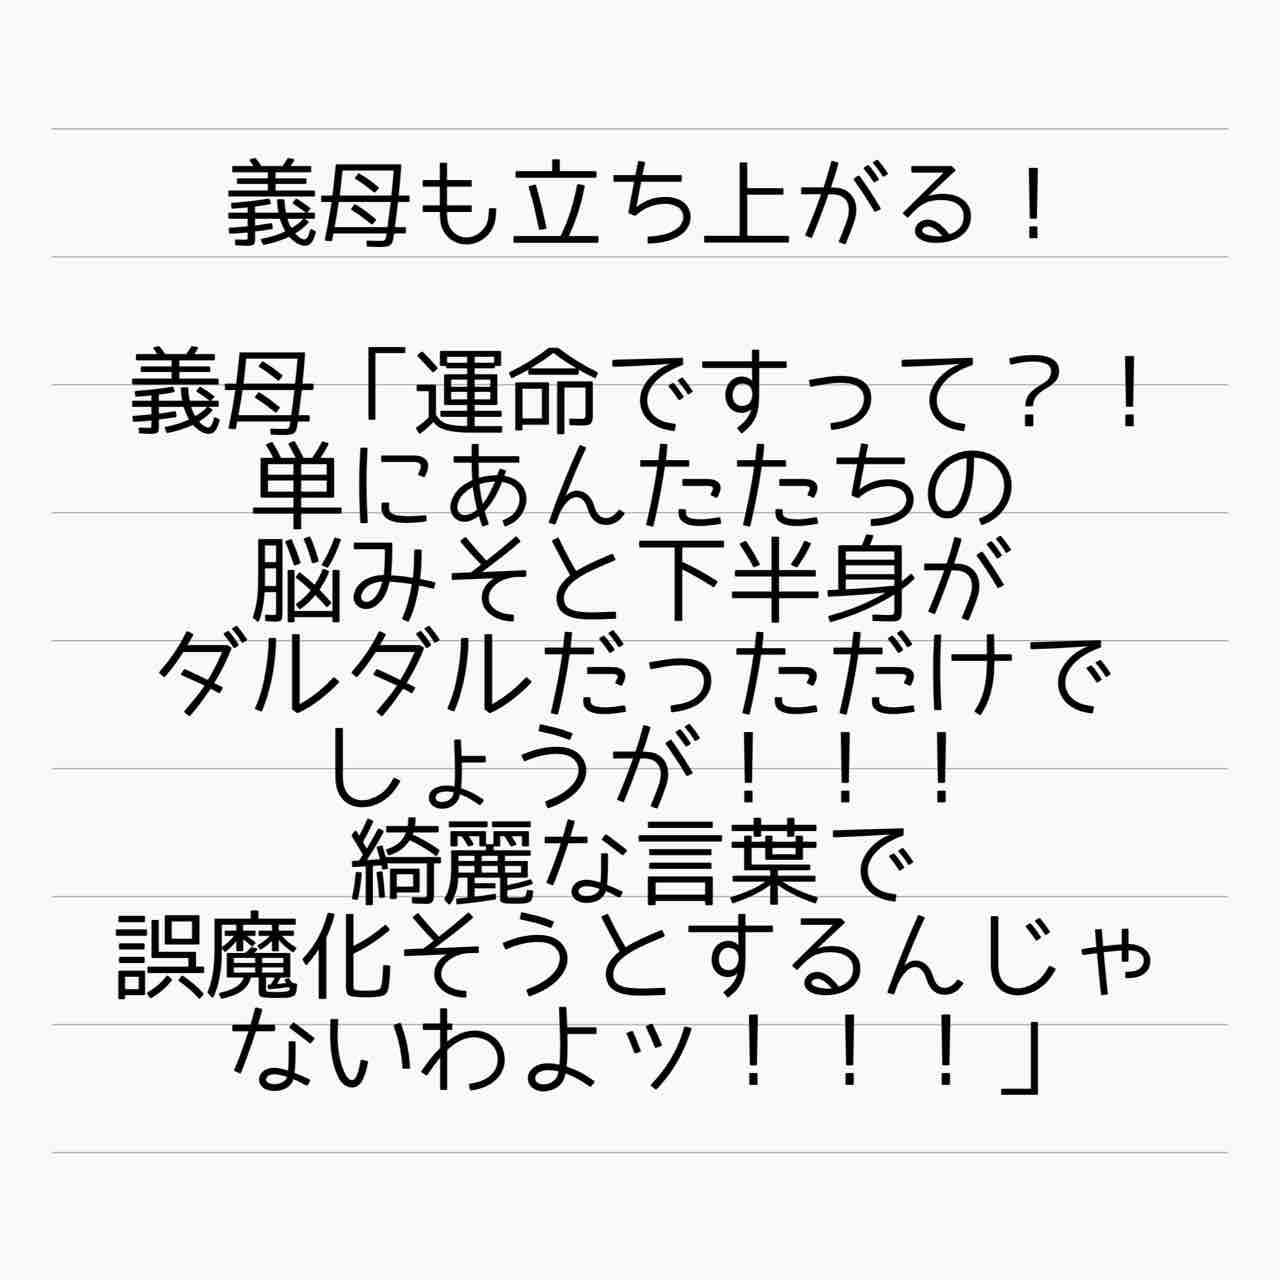 義母も立ち上がる！
義母「運命ですって？！
単にあんたたちの
脳みそと下半身が
ダルダルだっただけで
しょうが！！！
綺麗な言葉で
誤魔化そうとするんじゃ
ないわよッ！！！」